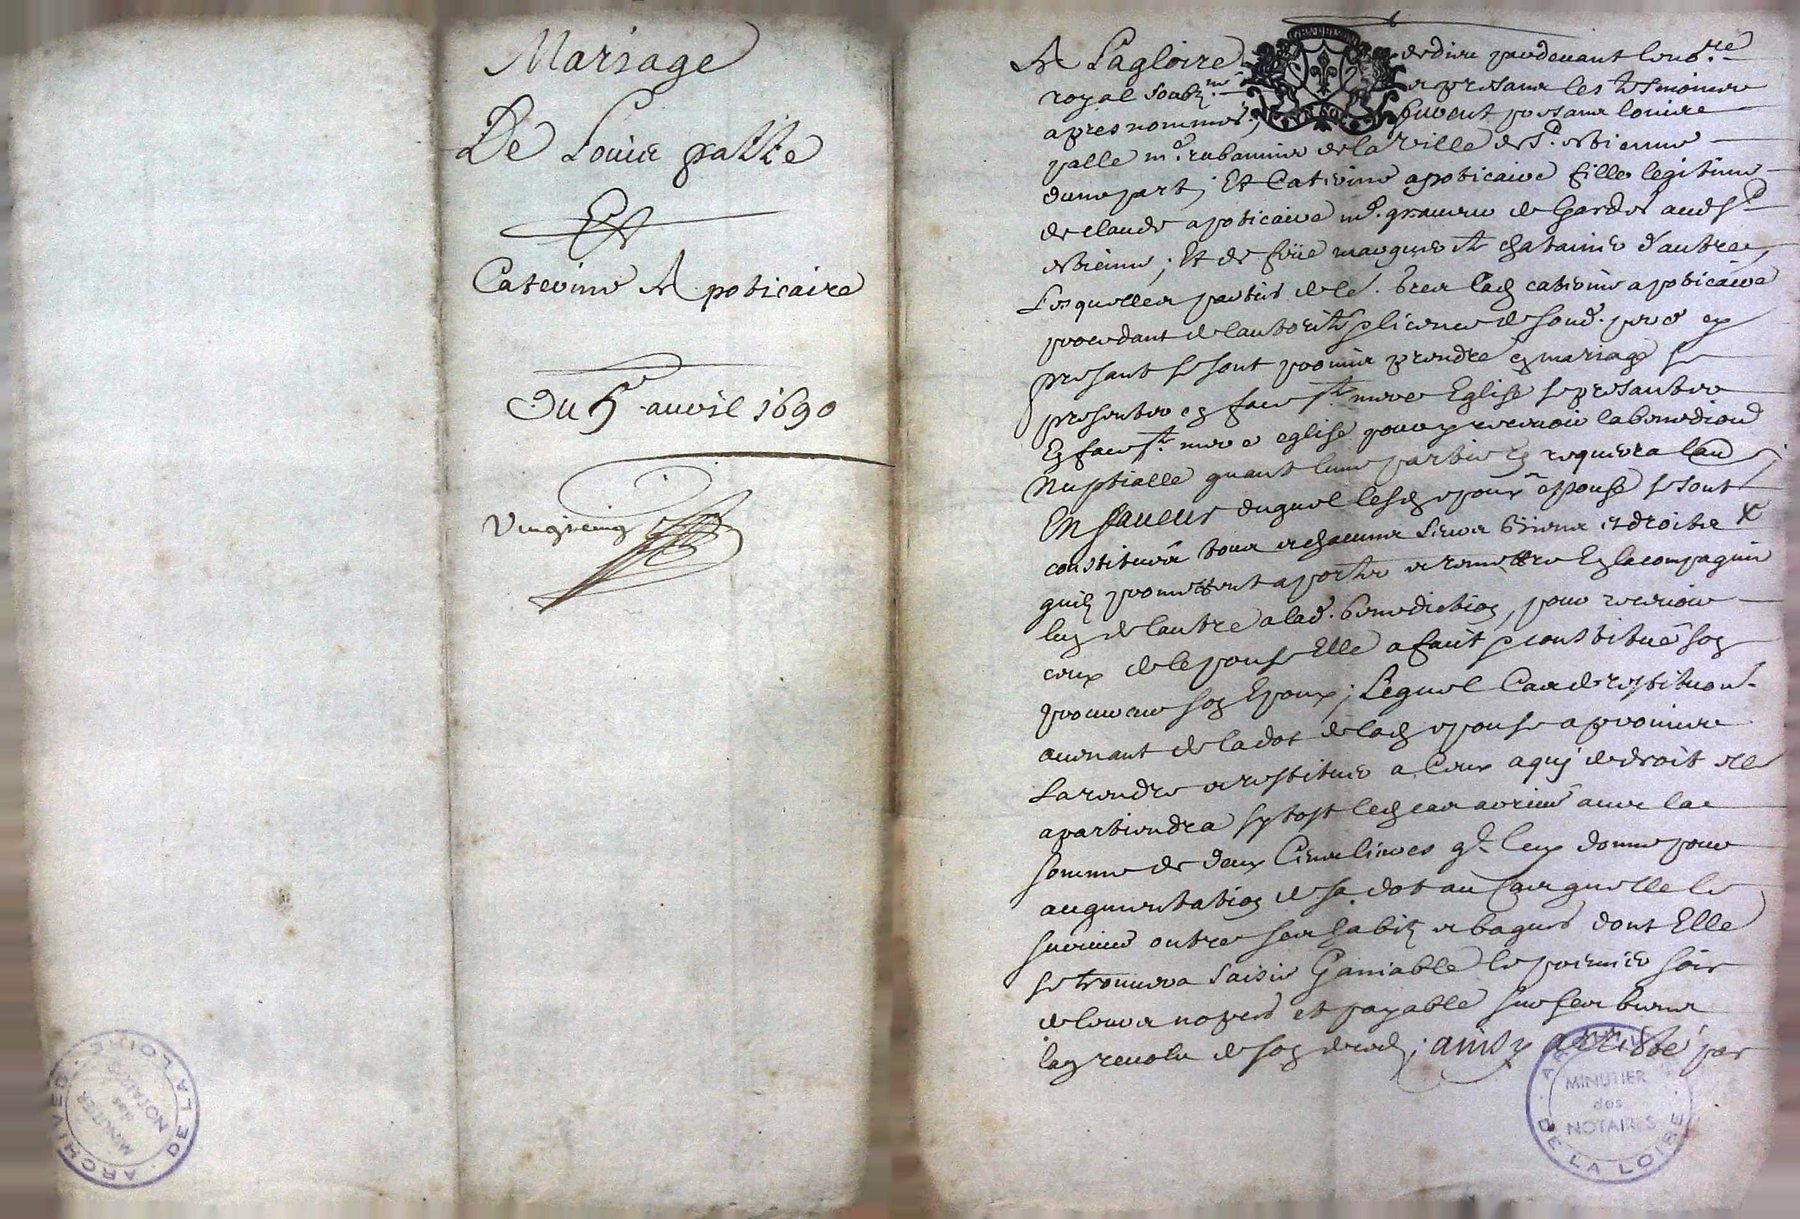 Mariage
De Louis palle
Et
Caterine Apoticaire
Du 5e auvril 1690
Vingt cinq
ARCHIVES DE LA LOIRE
MINUTIER
des
NOTAIRES
A La gloire de dieu pardevant le no.re
royal soubz.né et presans les tesmoins
apres nommés, furent presans Louis
palle m.e rubannier de la ville de S.t Estienne
d'une part; Et Caterine apoticaire fille legitime
de claude apoticaire m.e graveur de Gardes aud S.t
estienne; Et de feüe marguerite chatainier d'autre,
Lesquelles parties de le. lad caterine apoticaire
procedant de l'authorité licence de sond. pere cy
presant se sont promis prendre en mariage se
presenter en face S.te mere Eglise se presanter
En face S.te mere eglise pour y recevoir la benediction
Nuptialle quant l'une partie en requerra l'au
En faveur duquel lesd espoux espouse se sont
constitués tous et chacuns leurs biens et droits
quilz promettent aporter et remettre En la compagnie
lun de l'autre a lad. benediction, pour recevoir
ceux de l'epouse Elle a fait constitué son
procureur son Epoux; Lequel Cas de restituon
avenant de la dot de lad epouse a promis
La rendre et restituer a Ceux a qui de droit elle
apartiendra sytost led cas arrivé avec la
somme de deux Cens livres q.l luy donne pour
augmentation de sa dot au Cas quelle le
survive outre ses habitz et bagues dont Elle
se trouvera saisie Ganiable le premier soir
de leurs nopces et payable sur ses biens
lan revolu de son deced; ainsy acisté par
ARCHIVES DE LA LOIRE
MINUTIER
des
NOTAIRES